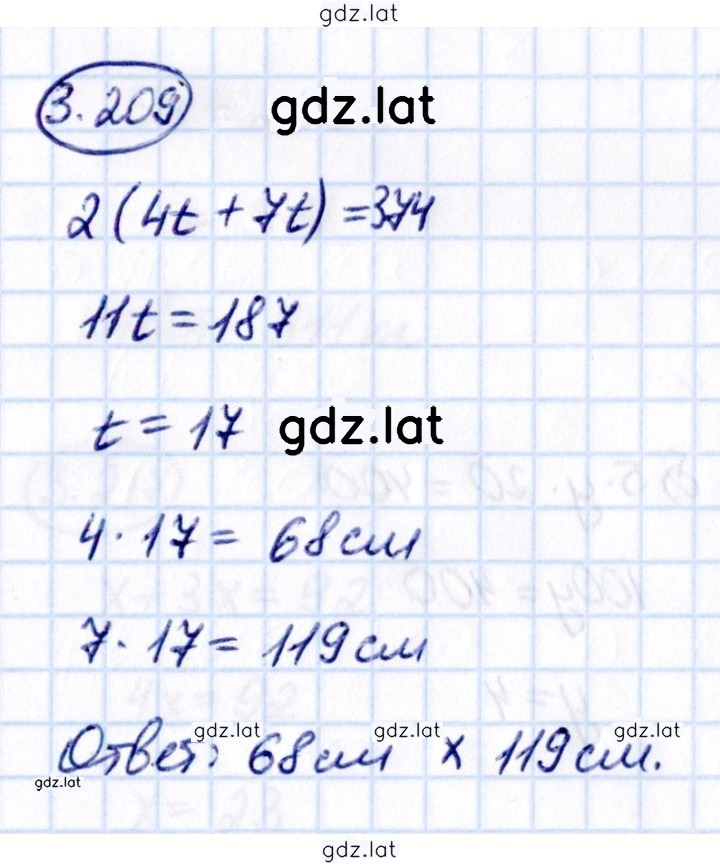 gdz.lat
3.209 gdz.lat
2(4t + 7t) = 374
11t = 187
t = 17 gdz.lat
4 · 17 = 68 см
7 · 17 = 119 см
gdz.lat gdz.lat gdz.lat
Ответ: 68 см х 119 см.
gdz.lat
gdz.lat